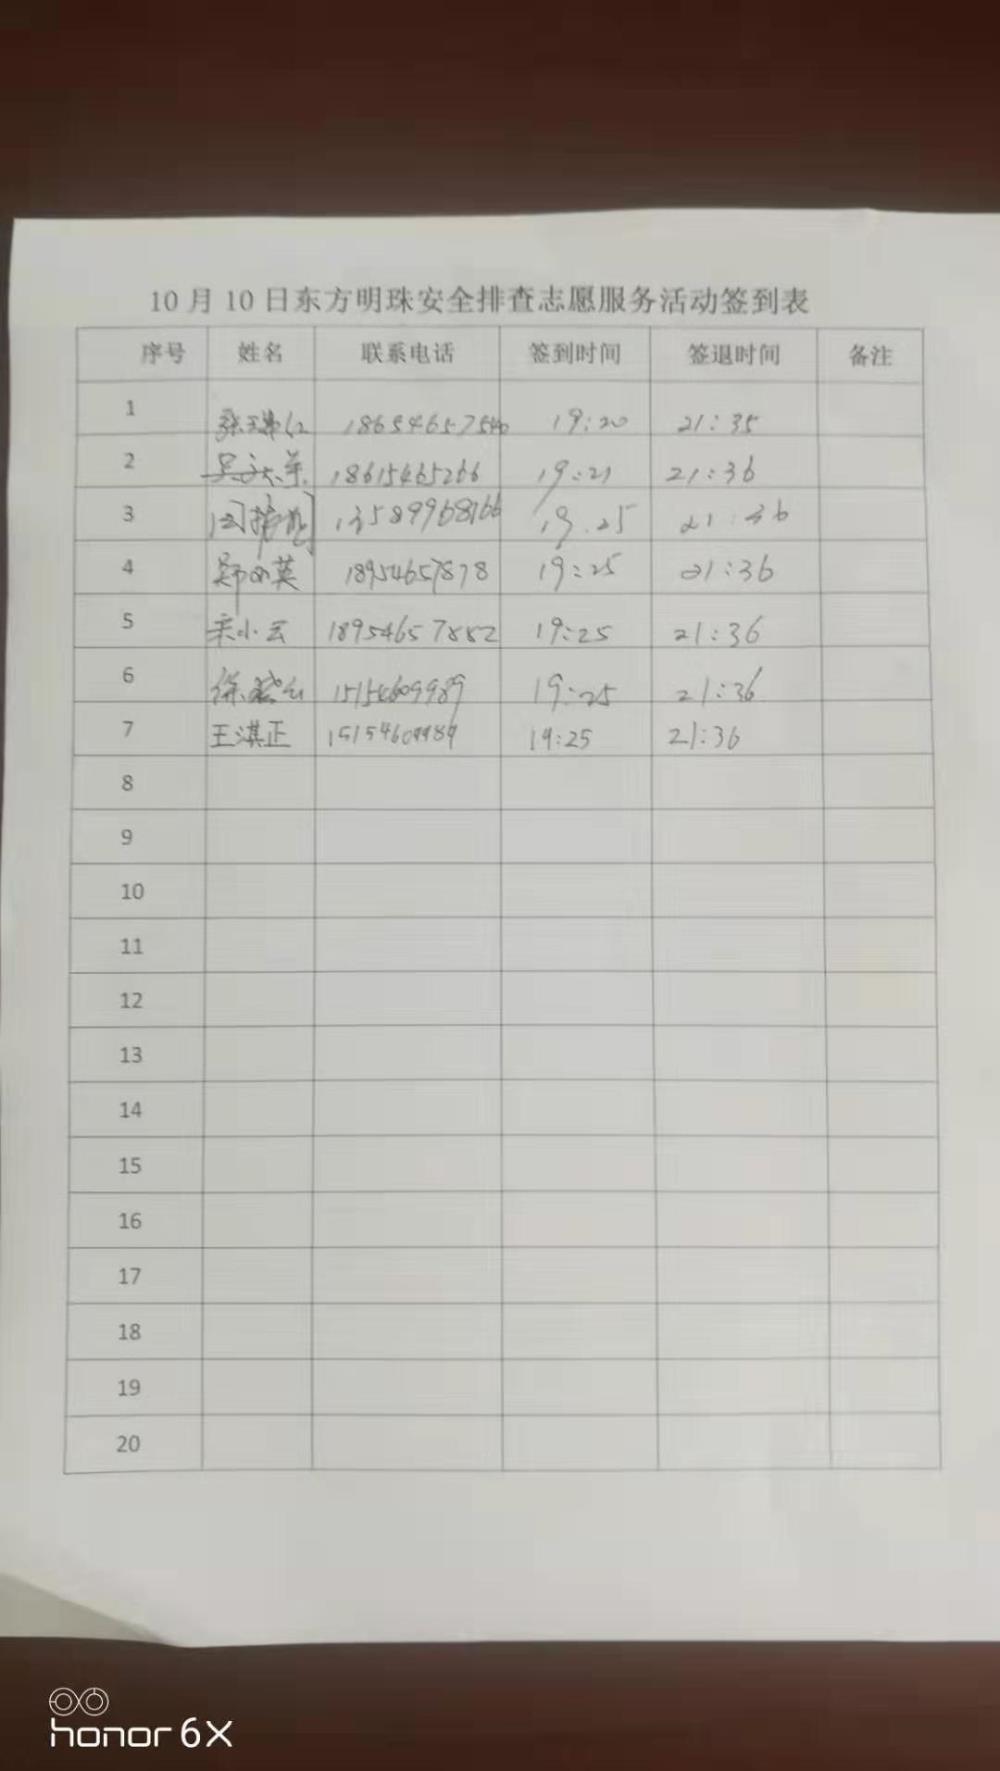 10月10日东方明珠安全排查志愿服务活动签到表
序号 姓名 联系电话 签到时间 签退时间 备注
1 19:20 21:35
2 18615465266 19:21 21:36
3 13589968166 19:25 21:36
4 18954657878 19:25 21:36
5 宋小云 18954657882 19:25 21:36
6 15154609989 19:25 21:36
7 王淇正 15154609989 19:25 21:36
8
9
10
11
12
13
14
15
16
17
18
19
20
honor 6X